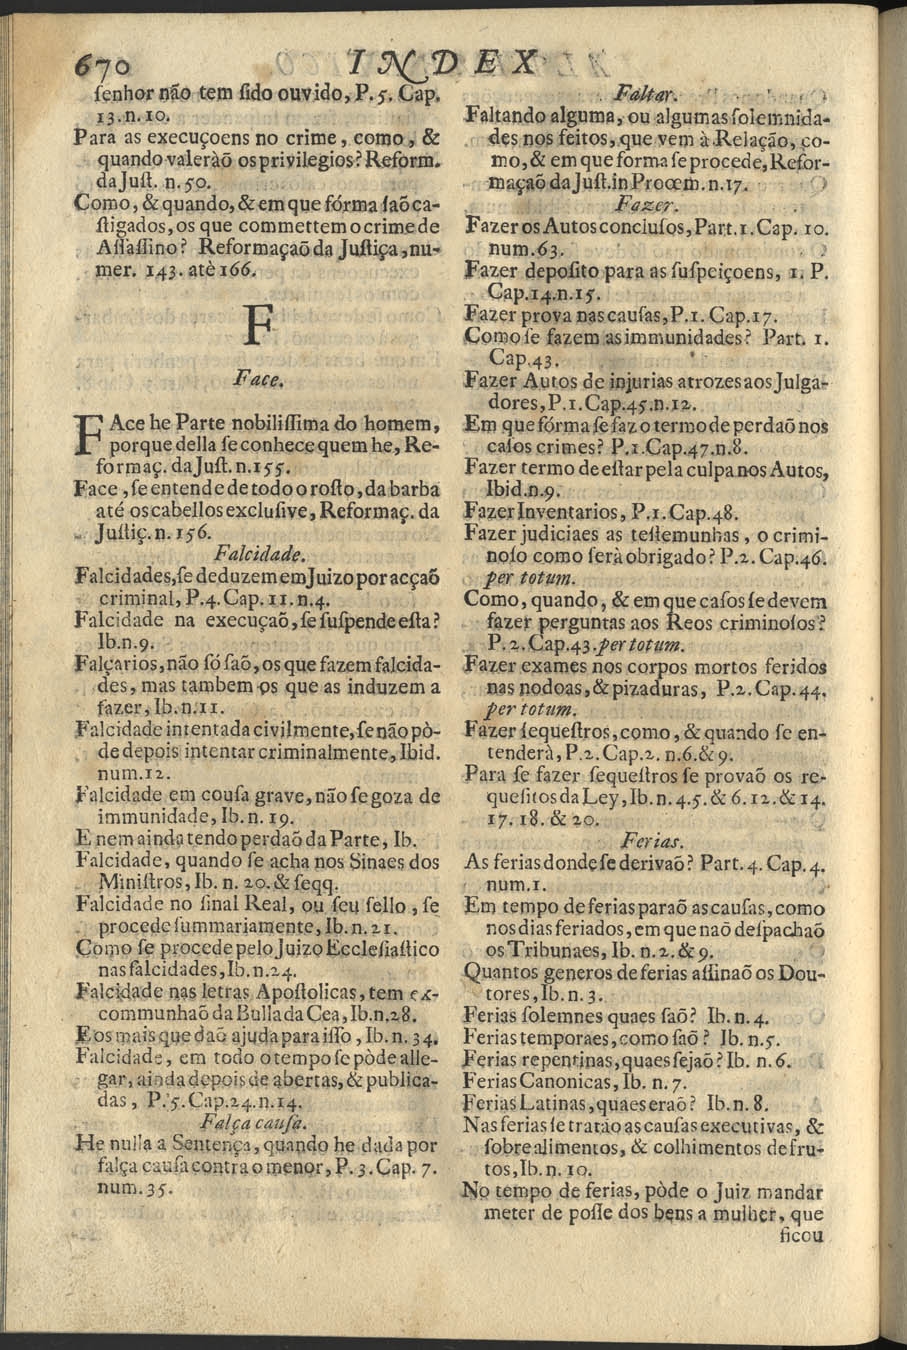 670 INDEX
ſenhor não tem ſido ouvido, P.5. Cap.
13.n.10.
Para as execuçoens no crime, como, &
quando valeràõ os privilegios? Reform.
da Juſt. n.50.
Como, & quando, & em que fórma ſaõ ca-
ſtigados, os que commettem o crime de
Aſſaſſino? Reformaçaõ da Juſtiça, nu-
mer. 143. atè 166.
F
Face.
FAce he Parte nobiliſſima do homem,
porque della ſe conhece quem he, Re-
formaç. da Juſt. n.155.
Face, ſe entende de todo o roſto, da barba
até os cabellos exclusive, Reformaç. da
Juſtiç. n. 156.
Falcidade.
Falcidades, ſe deduzem em Juizo por acçaõ
criminal, P.4. Cap. 11. n.4.
Falcidade na execuçaõ, ſe ſuſpende eſta?
Ib.n.9.
Falçarios, não ſó ſaõ, os que fazem falcida-
des, mas tambem os que as induzem a
fazer, Ib.n.11.
Falcidade intentada civilmente, ſe não pò-
de depois intentar criminalmente, Ibid.
num.12.
Falcidade em couſa grave, não ſe goza de
immunidade, Ib. n. 19.
E nem ainda tendo perdaõ da Parte, Ib.
Falcidade, quando ſe acha nos Sinaes dos
Miniſtros, Ib. n. 20. & ſeqq.
Falcidade no ſinal Real, ou ſeu ſello, ſe
procede ſummariamente, Ib. n. 21.
Como ſe procede pelo Juizo Eccleſiaſtico
nas falcidades, Ib.n.24.
Falcidade nas letras Apoſtolicas, tem ex-
communhaõ da Bulla da Cea, Ib.n.28.
E os mais que daõ ajuda para iſſo, Ib. n. 34.
Falcidade, em todo o tempo ſe pòde alle-
gar, ainda depois de abertas, & publica-
das, P. 5. Cap.24.n.14.
Falça cauſa.
He nulla a Sentença, quando he dada por
falça cauſa contra o menor, P. 3. Cap. 7.
num.35.
Faltar.
Faltando alguma, ou algumas ſolemnida-
des nos feitos, que vem à Relaçāo, co-
mo, & em que forma ſe procede, Refor-
maçaõ da Juſt. in Proœm. n.17.
Fazer.
Fazer os Autos concluſos, Part.1. Cap. 10.
num.63.
Fazer depoſito para as ſuſpeiçoens, 1. P.
Cap.14.n.15.
Fazer prova nas cauſas, P.1. Cap.17.
Como ſe fazem as immunidades? Part. 1.
Cap.43.
Fazer Autos de injurias atrozes aos Julga-
dores, P.1.Cap.45.n.12.
Em que fórma ſe faz o termo de perdaõ nos
caſos crimes? P.1.Cap.47.n.8.
Fazer termo de eſtar pela culpa nos Autos,
Ibid.n.9.
Fazer Inventarios, P.1.Cap.48.
Fazer judiciaes as teſtemunhas, o crimi-
noſo como ſerà obrigado? P.2. Cap.46.
per totum.
Como, quando, & em que caſos ſe devem
fazer perguntas aos Reos criminoſos?
P. 2. Cap.43. per totum.
Fazer exames nos corpos mortos feridos
nas nodoas, & pizaduras, P.2. Cap.44.
per totum.
Fazer ſequeſtros, como, & quando ſe en-
tenderà, P.2. Cap.2. n.6.& 9.
Para ſe fazer ſequeſtros ſe provaõ os re-
queſitos da Ley, Ib. n. 4.5. & 6. 12. & 14.
17. 18. & 20.
Ferias.
As ferias donde ſe derivaõ? Part. 4. Cap. 4.
num.1.
Em tempo de ferias paraõ as cauſas, como
nos dias feriados, em que naõ deſpachaõ
os Tribunaes, Ib. n.2. & 9.
Quantos generos de ferias aſſinaõ os Dou-
tores, Ib. n. 3.
Ferias ſolemnes quaes ſaõ? Ib. n. 4.
Ferias temporaes, como ſaõ? Ib. n.5.
Ferias repentinas, quaes ſejaõ? Ib. n.6.
Ferias Canonicas, Ib. n. 7.
Ferias Latinas, quaes eraõ? Ib. n. 8.
Nas ferias ſe tratão as cauſas executivas, &
ſobre alimentos, & colhimentos de fru-
tos, Ib. n. 10.
No tempo de ferias, pòde o Juiz mandar
meter de poſſe dos bens a mulher, que
ficou